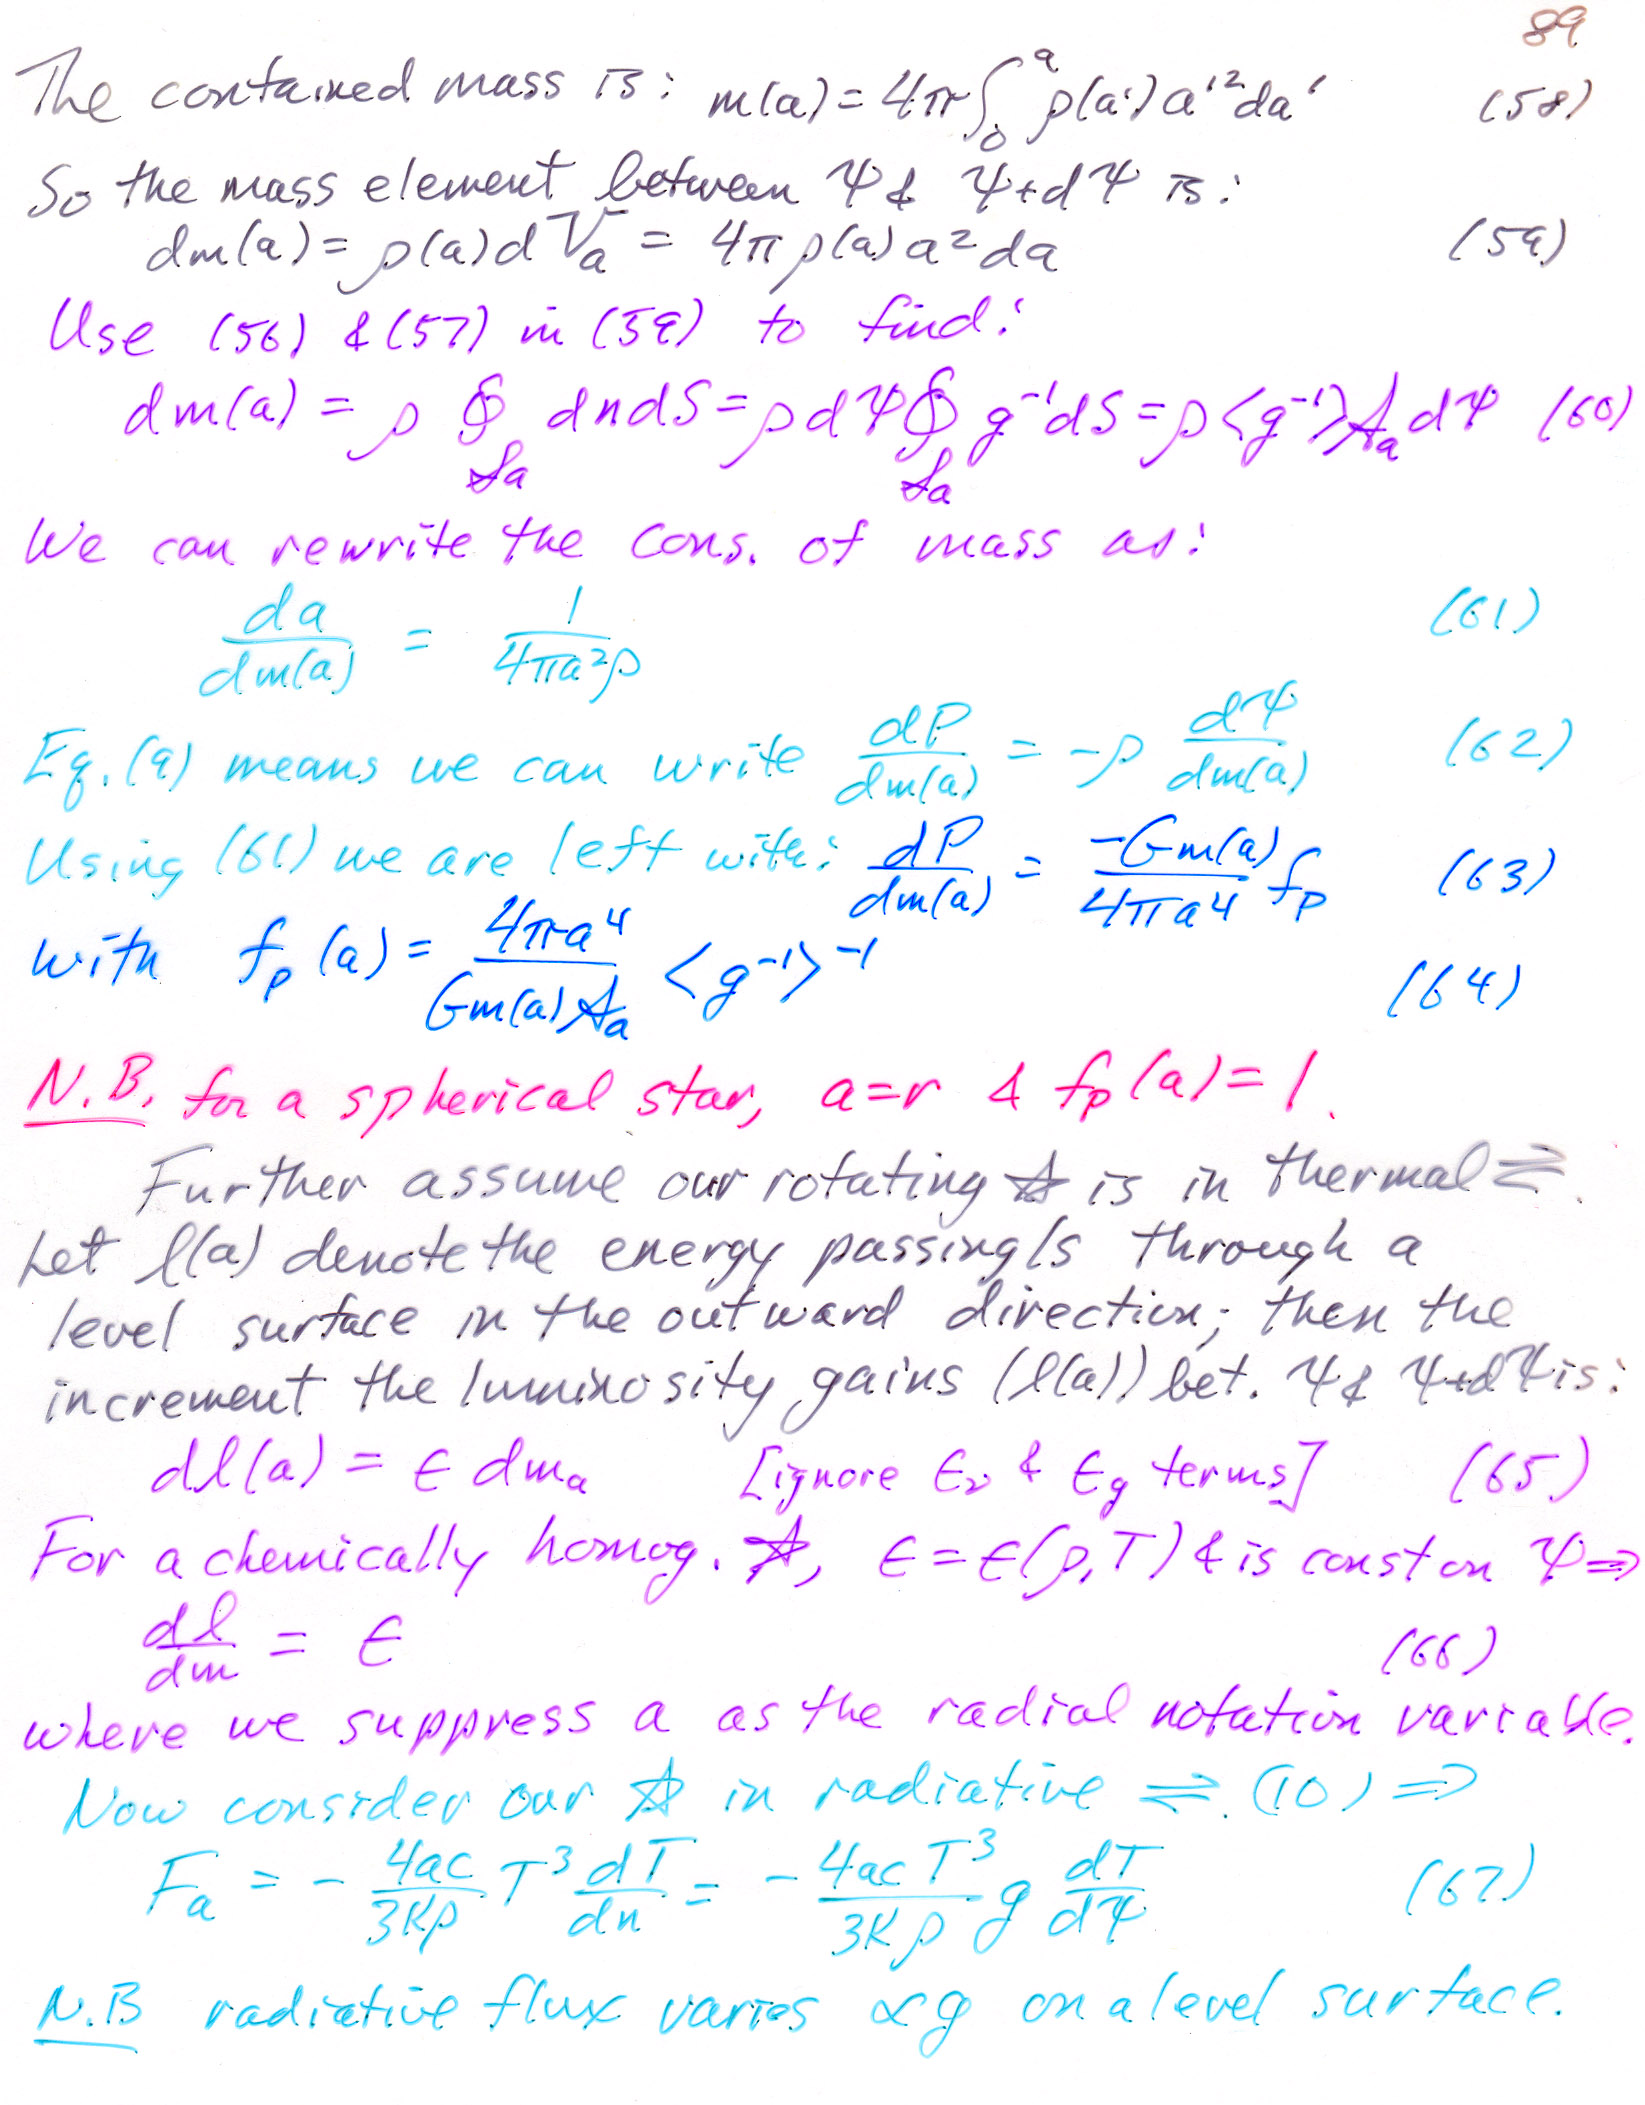 89
The contained mass is: m(a) = 4π∫₀ᵃ ρ(a')a'²da' (58)
So the mass element between Ψ & Ψ+dΨ is:
dm(a) = ρ(a)dVₐ = 4πρ(a)a²da (59)
Use (56) & (57) in (59) to find:
dm(a) = ρ ∮_𝒮ₐ dndS = ρdΨ∮_𝒮ₐ g⁻¹dS = ρ<g⁻¹>Aₐdψ (60)
We can rewrite the Cons. of mass as:
da/dm(a) = 1/4πa²ρ (61)
Eq. (9) means we can write dP/dm(a) = -ρ dΨ/dm(a) (62)
Using (61) we are left with: dP/dm(a) = -Gm(a)/4πa⁴ fₚ (63)
with fₚ(a) = 4πa⁴/Gm(a)Aₐ <g⁻¹>⁻¹ (64)
N.B. for a spherical star, a=r & fₚ(a)=1.
Further assume our rotating ☆ is in thermal ⇌.
Let l(a) denote the energy passing/s through a
level surface in the outward direction; then the
increment the luminosity gains (l(a)) bet. Ψ & Ψ+dΨ is:
dl(a) = ε dmₐ [ignore εᵥ & ε_g terms] (65)
For a chemically homog. ☆, ε = ε(ρ,T) & is const on Ψ ⇒
dl/dm = ε (66)
where we suppress a as the radial notation variable.
Now consider our ☆ in radiative ⇌. (10) ⇒
Fₐ = - 4ac/3κρ T³ dT/dn = - 4acT³/3κρ g dT/dΨ (67)
N.B radiative flux varies ∝g on a level surface.